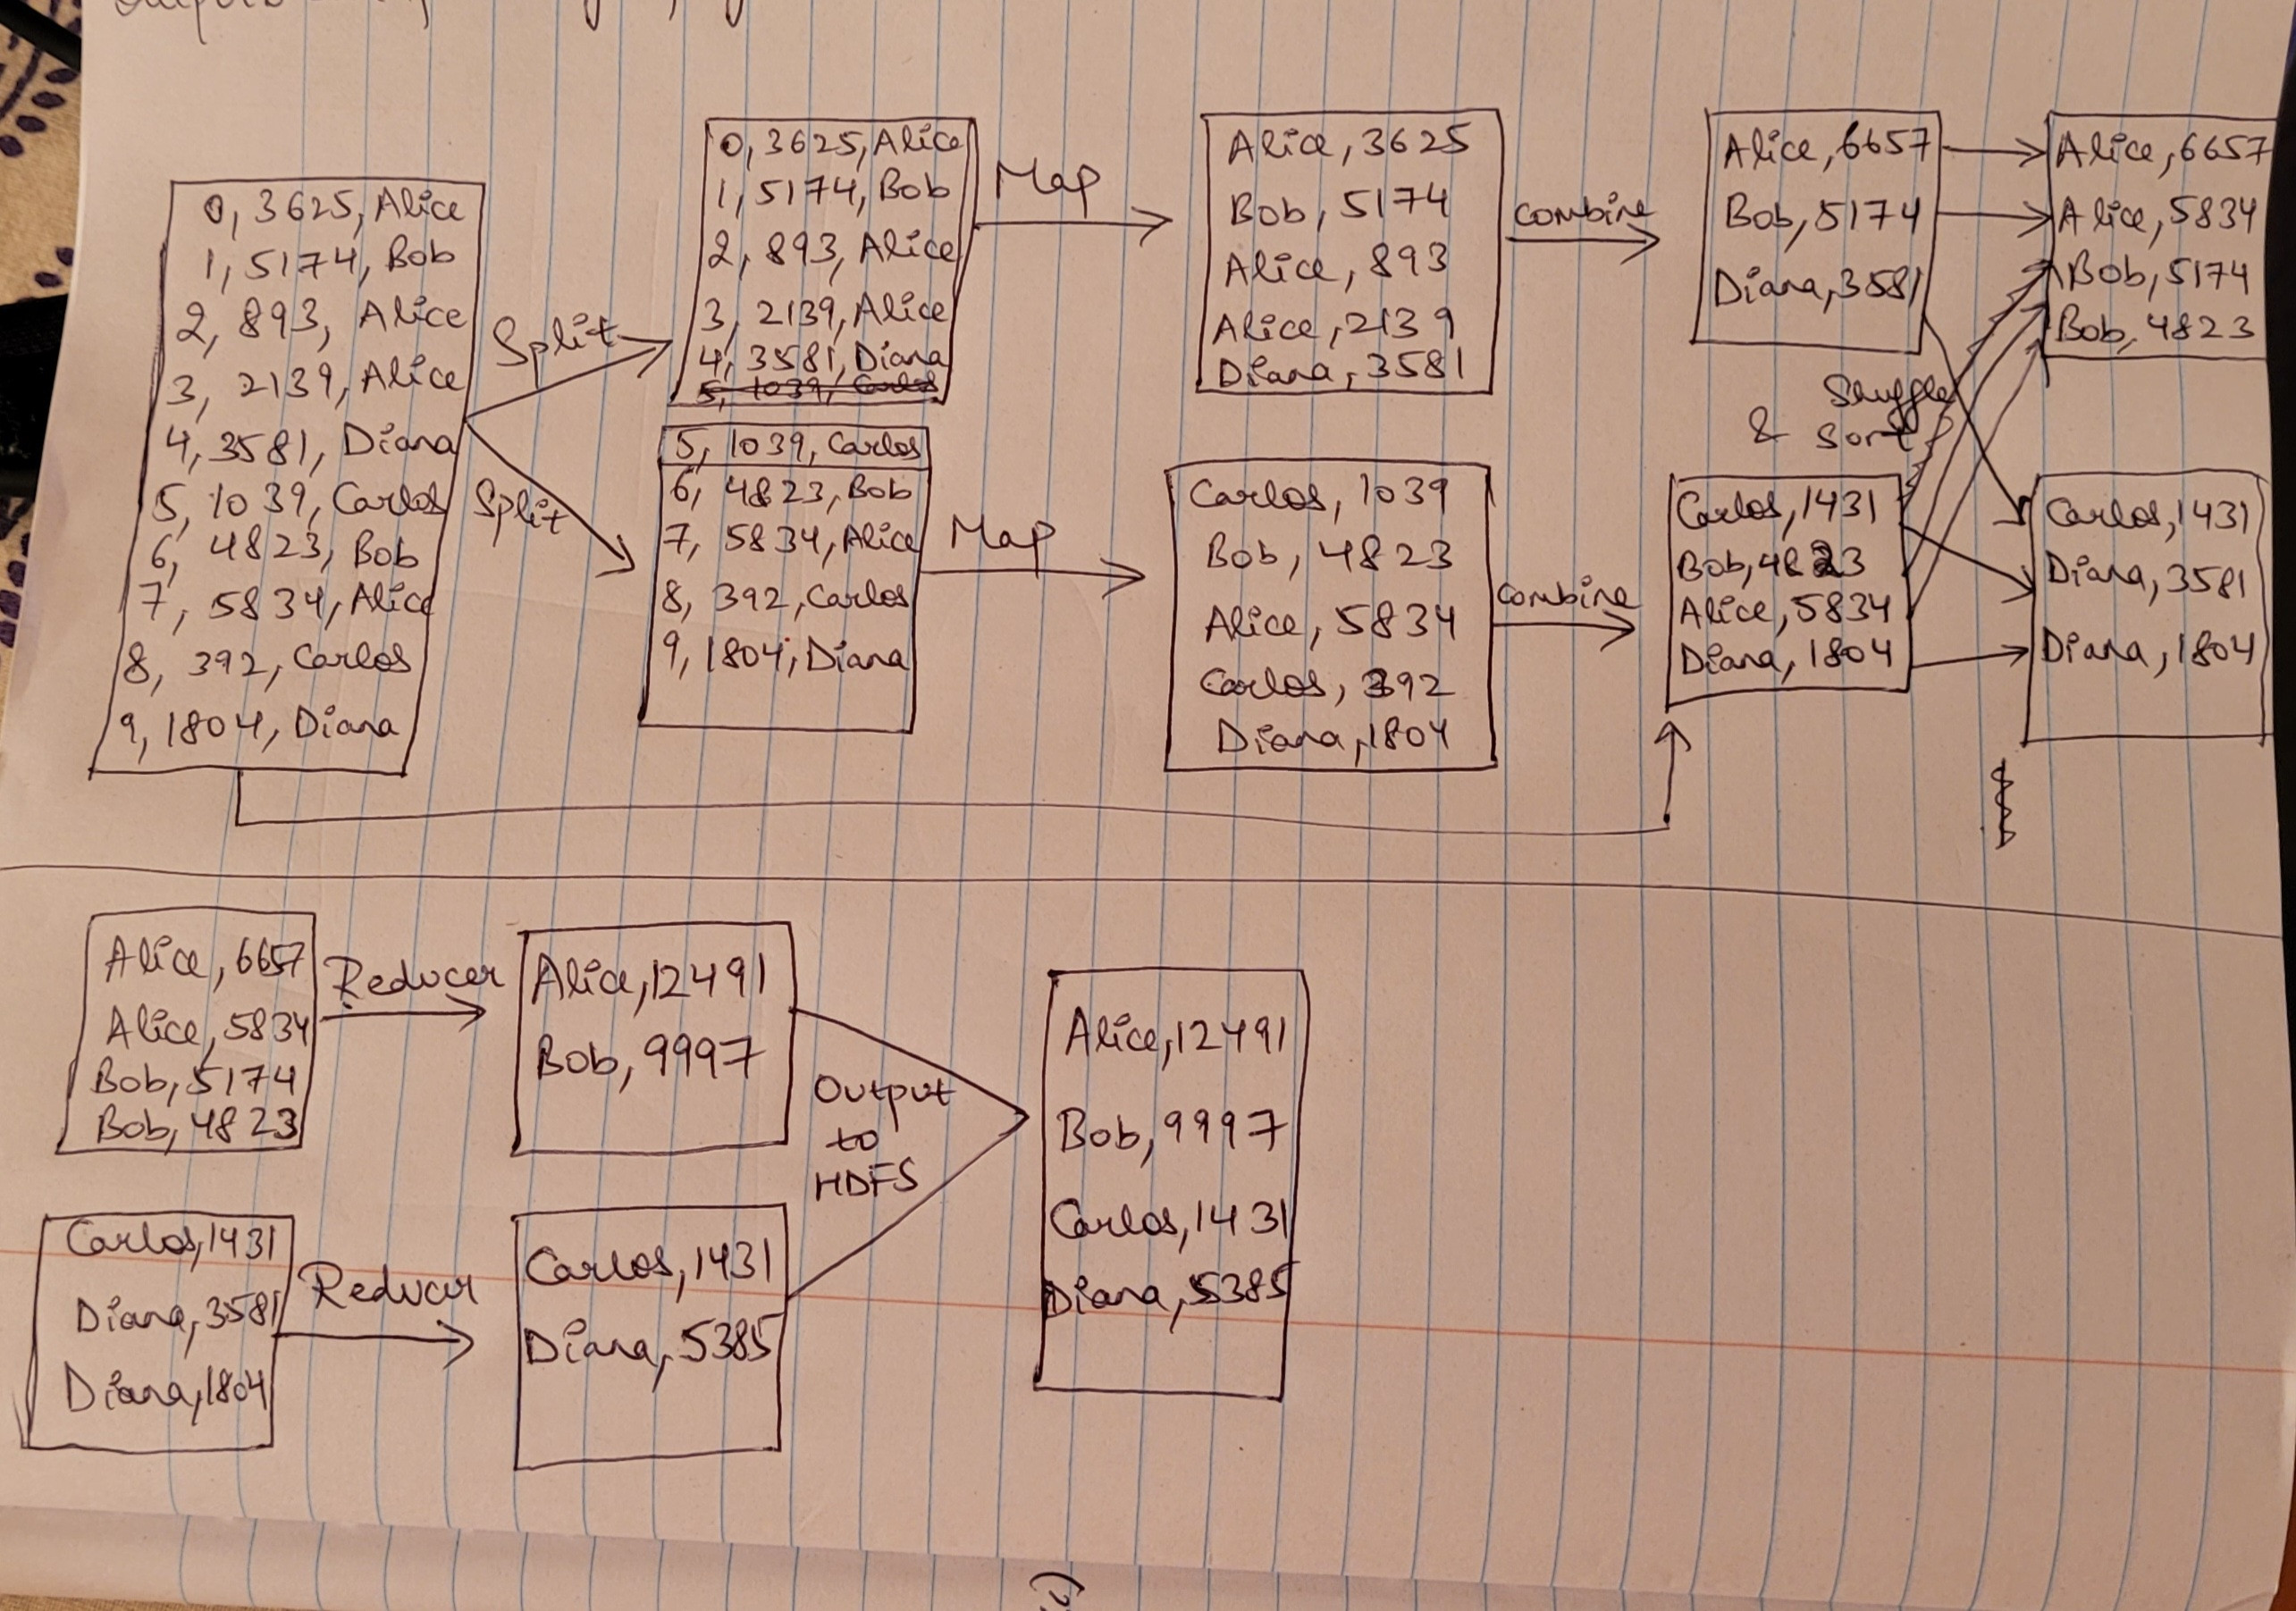 0, 3625, Alice
1, 5174, Bob
2, 893, Alice
3, 2139, Alice
4, 3581, Diana
5, 1039, Carlos
6, 4823, Bob
7, 5834, Alice
8, 392, Carlos
9, 1804, Diana
Split
Split
0, 3625, Alice
1, 5174, Bob
2, 893, Alice
3, 2139, Alice
4, 3581, Diana
5, 1039, Carlos
5, 1039, Carlos
6, 4823, Bob
7, 5834, Alice
8, 392, Carlos
9, 1804, Diana
Map
Map
Alice, 3625
Bob, 5174
Alice, 893
Alice, 2139
Diana, 3581
Carlos, 1039
Bob, 4823
Alice, 5834
Carlos, 392
Diana, 1804
combine
combine
Alice, 6657
Bob, 5174
Diana, 3581
Shuffle
& Sort
Carlos, 1431
Bob, 4823
Alice, 5834
Diana, 1804
Alice, 6657
Alice, 5834
Bob, 5174
Bob, 4823
Carlos, 1431
Diana, 3581
Diana, 1804
Alice, 6657
Alice, 5834
Bob, 5174
Bob, 4823
Reducer
Alice, 12491
Bob, 9997
Carlos, 1431
Diana, 3581
Diana, 1804
Reducer
Carlos, 1431
Diana, 5385
Output
to
HDFS
Alice, 12491
Bob, 9997
Carlos, 1431
Diana, 5385